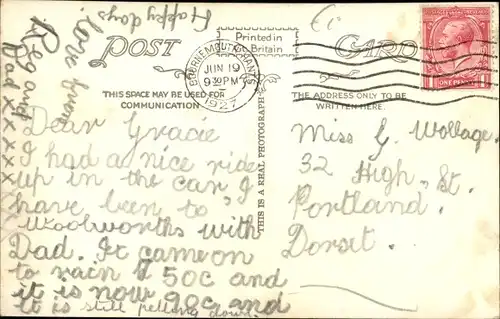 POST
Printed in
Gt Britain
CARD
BOURNEMOUTH
JUN 19
930PM
1927
ONE PENNY
THIS SPACE MAY BE USED FOR
COMMUNICATION
THE ADDRESS ONLY TO BE
WRITTEN HERE.
THIS IS A REAL PHOTOGRAPH
Dear Gracie
I had a nice ride
up in the car I
have been to
Woolworths with
Dad. It came on
to rain 50c and
it is now 90c and
it is still pelting down.
love from
Reg and
Dad xxxxx
Happy days
Miss G. Wollage.
32 High St.
Portland.
Dorset.